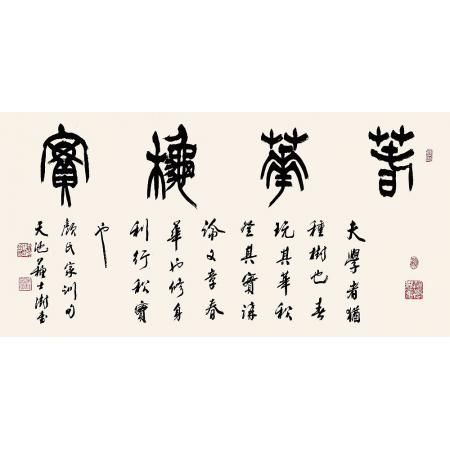 春華秋實
夫學者猶
種樹也春
玩其華秋
登其實講
論文章春
華也修身
利行秋實
也
顏氏家訓句
天池蘇士澍書